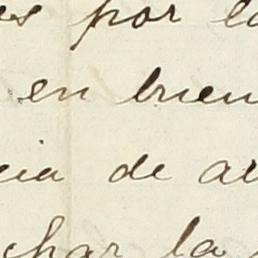 es por la
en buen
cia de ar
char la